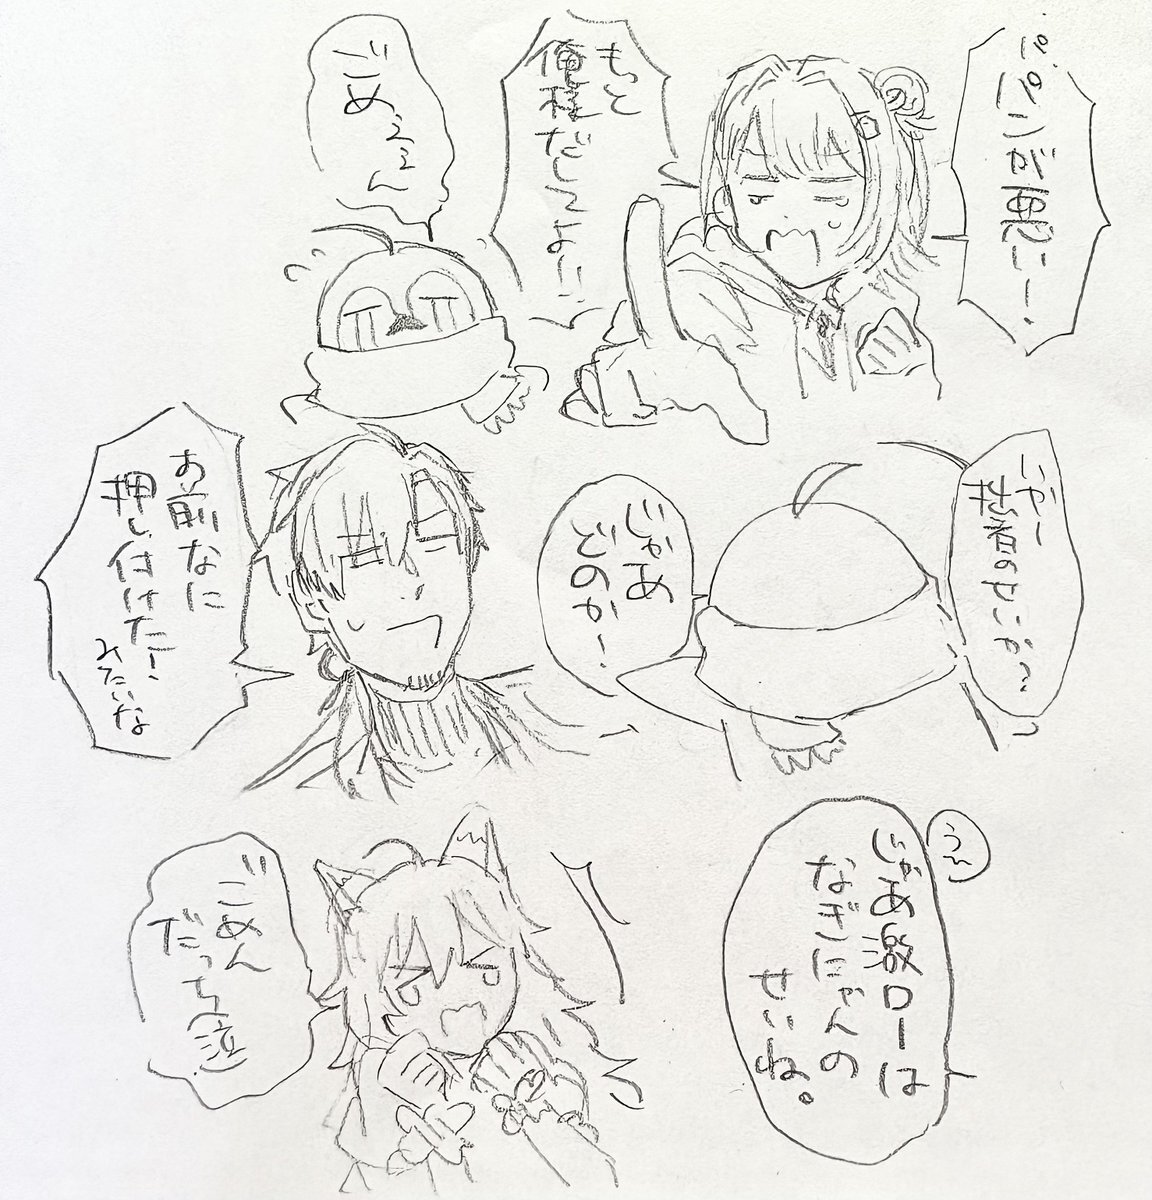 もっと
俺様だしてよ!!
ごめぇぇん
いやー
拙者のせいか〜
じゃあ
どのか〜
お前なに
押し付けた!
みたいな
うん
じゃあ激ローは
なぎにゃんの
せいね。
ごめん
だっち(泣)